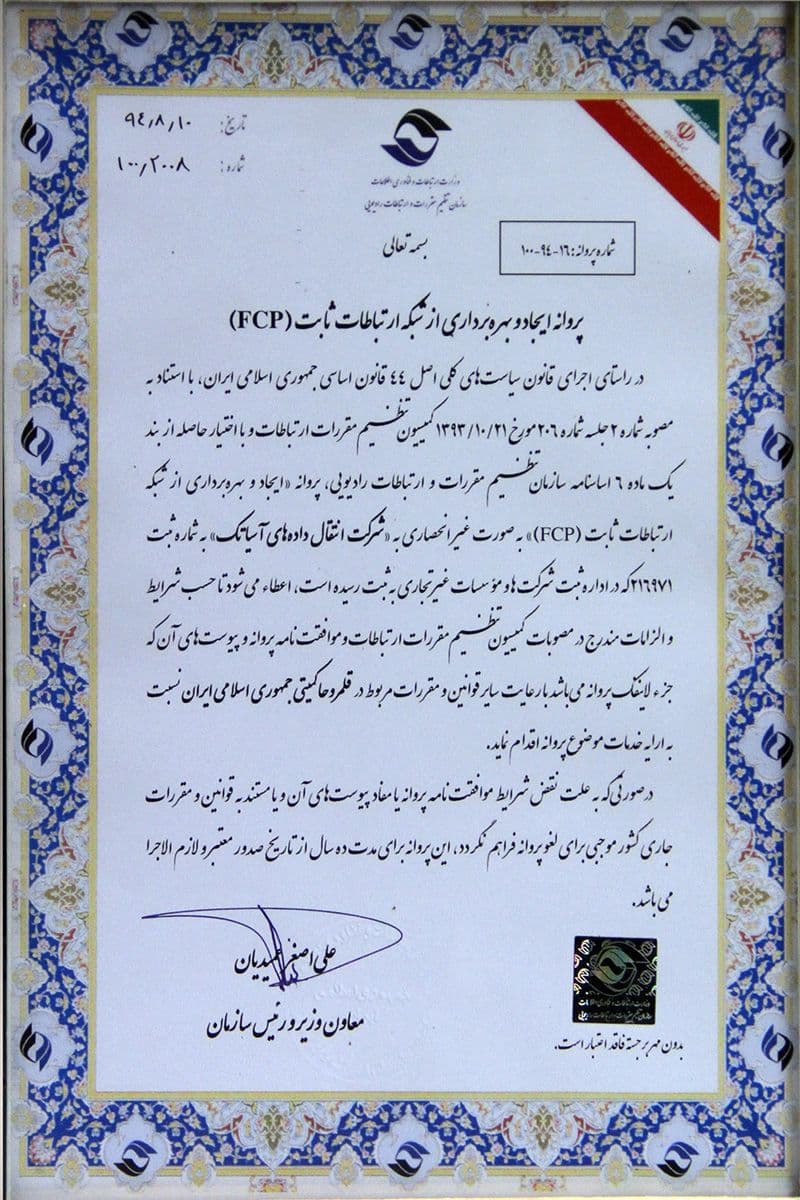 تاریخ: ۹٤٫۸٫۱۰
شماره: ۱۰۰٫۲۰۰۸
وزارت ارتباطات و فناوری اطلاعات
سازمان تنظیم مقررات و ارتباطات رادیویی
بسمه تعالی
شماره پروانه: ۱٦-۹٤-۱۰۰
پروانه ایجاد و بهره‌برداری از شبکه ارتباطات ثابت (FCP)
در راستای اجرای قانون سیاست‌های کلی اصل ٤٤ قانون اساسی جمهوری اسلامی ایران، با استناد به
مصوبه شماره ۲ جلسه شماره ۲۰٦ مورخ ۱۳۹۳/۱۰/۲۱ کمیسیون تنظیم مقررات ارتباطات و با اختیار حاصله از بند
یک ماده ٦ اساسنامه سازمان تنظیم مقررات و ارتباطات رادیویی، پروانه «ایجاد و بهره‌برداری از شبکه
ارتباطات ثابت (FCP)» به صورت غیر انحصاری به «شرکت انتقال داده‌های آسیاتک» به شماره ثبت
۲۱٦۹۷۱ که در اداره ثبت شرکت‌ها و مؤسسات غیر تجاری به ثبت رسیده است، اعطاء می شود تا حسب شرایط
و الزامات مندرج در مصوبات کمیسیون تنظیم مقررات ارتباطات و موافقت نامه پروانه و پیوست‌های آن که
جزء لاینفک پروانه می‌باشد با رعایت سایر قوانین و مقررات مربوط در قلمرو حاکمیتی جمهوری اسلامی ایران نسبت
به ارایه خدمات موضوع پروانه اقدام نماید.
درصورتی‌که به علت نقض شرایط موافقت نامه پروانه یا مفاد پیوست‌های آن و یا مستند به قوانین و مقررات
جاری کشور موجبی برای لغو پروانه فراهم نگردد، این پروانه برای مدت ده سال از تاریخ صدور معتبر و لازم الاجرا
می باشد.
علی اصغر عمیدیان
معاون وزیر و رئیس سازمان
وزارت ارتباطات و فناوری اطلاعات
سازمان تنظیم مقررات و ارتباطات رادیویی
بدون مهر برجسته فاقد اعتبار است.